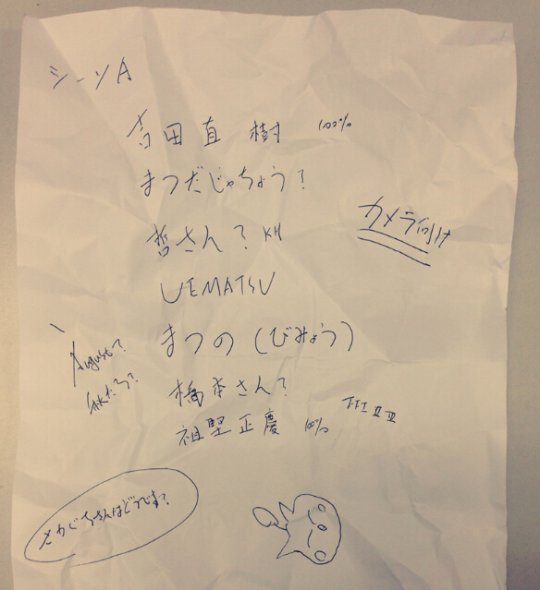 シーソA
吉田直樹 100%
まつだじゅちょう?
哲さん? KH
カメラ向け
UEMATSU
まつの (びみょう)
August?
橋本さん?
祖堅正慶 100%
さかぐちさんはどうです?